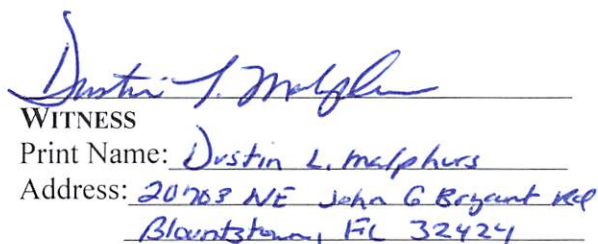 Dustin L. Malphurs
WITNESS
Print Name: Dustin L. Malphurs
Address: 20703 NE John G Bryant Rd
Blountstown, FL 32424